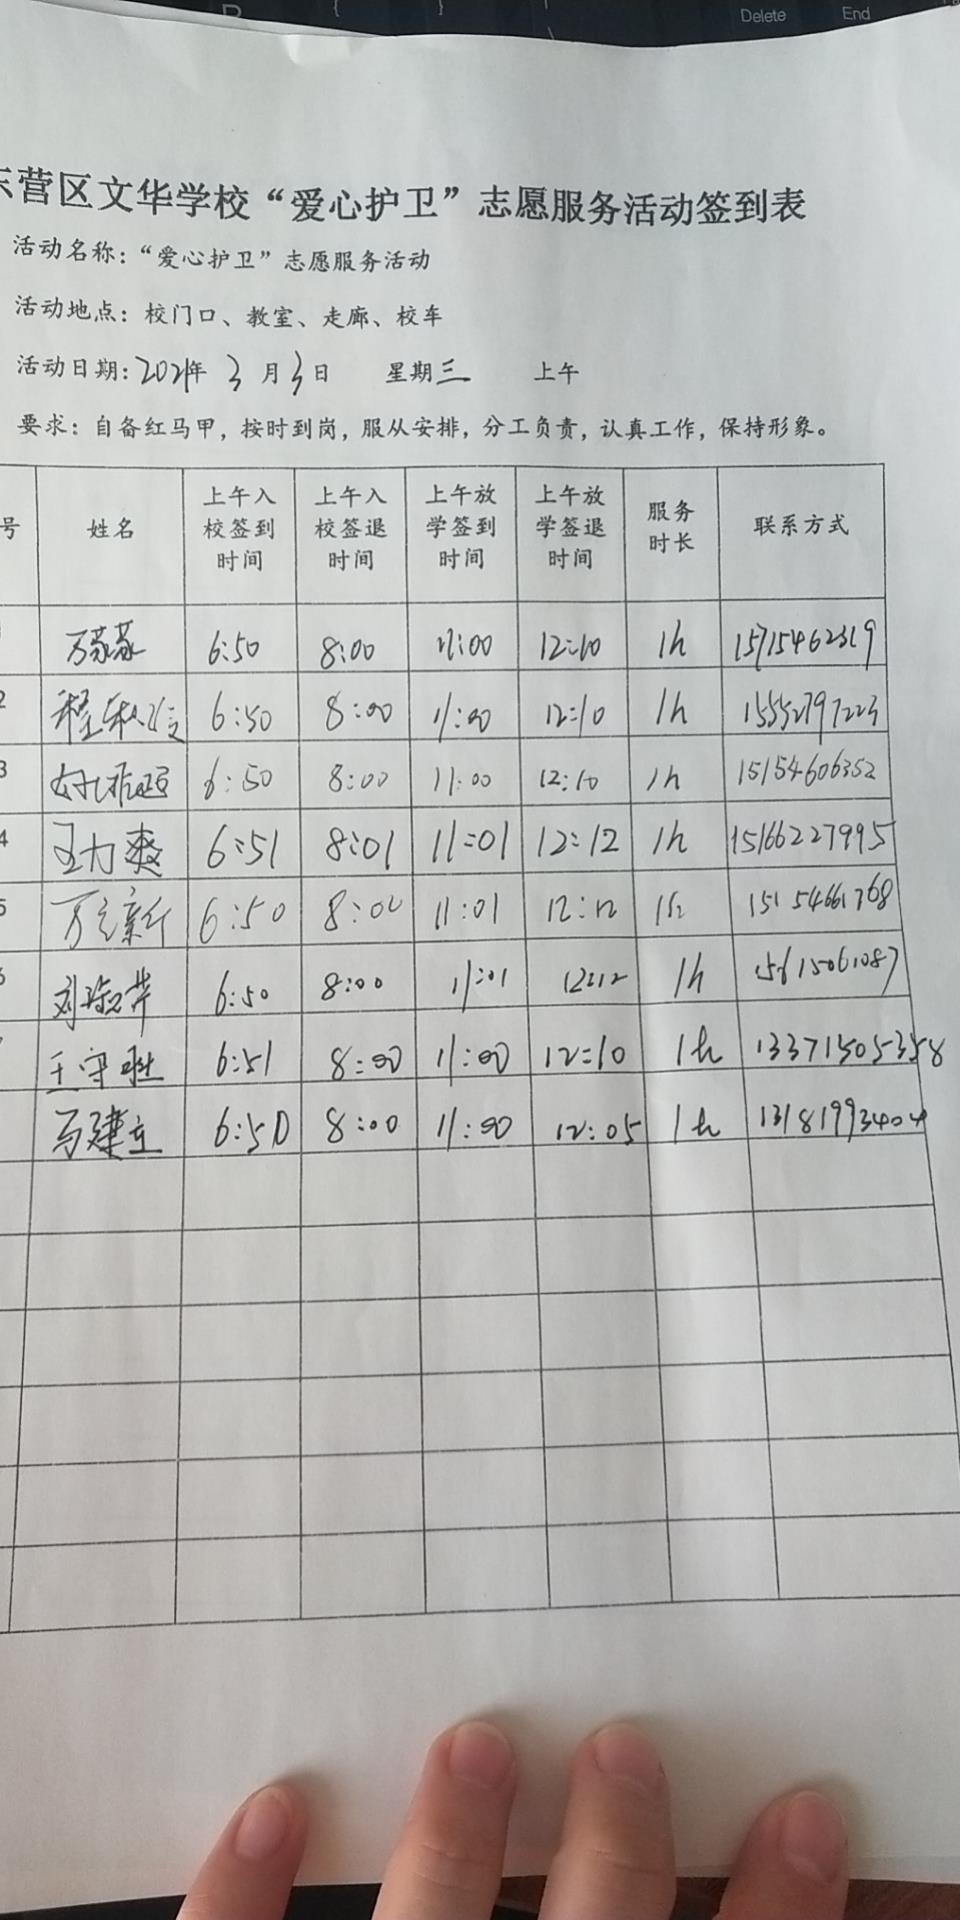 Delete End
东营区文华学校“爱心护卫”志愿服务活动签到表
活动名称：“爱心护卫”志愿服务活动
活动地点：校门口、教室、走廊、校车
活动日期：2021年 3月3日 星期三 上午
要求：自备红马甲，按时到岗，服从安排，分工负责，认真工作，保持形象。
号 姓名 上午入校签到时间 上午入校签退时间 上午放学签到时间 上午放学签退时间 服务时长 联系方式
6:50 8:00 11:00 12:10 1h 15715462319
2 6:50 8:00 11:00 12:10 1h 15552797223
3 6:50 8:00 11:00 12:10 1h 15154606352
4 王力爽 6:51 8:01 11:01 12:12 1h 15166227995
5 6:50 8:00 11:01 12:12 1h 15154661768
6 6:50 8:00 11:01 12:12 1h 15615061087
王守胜 6:51 8:00 11:00 12:10 1h 13371505358
马建立 6:50 8:00 11:00 12:05 1h 13181993404